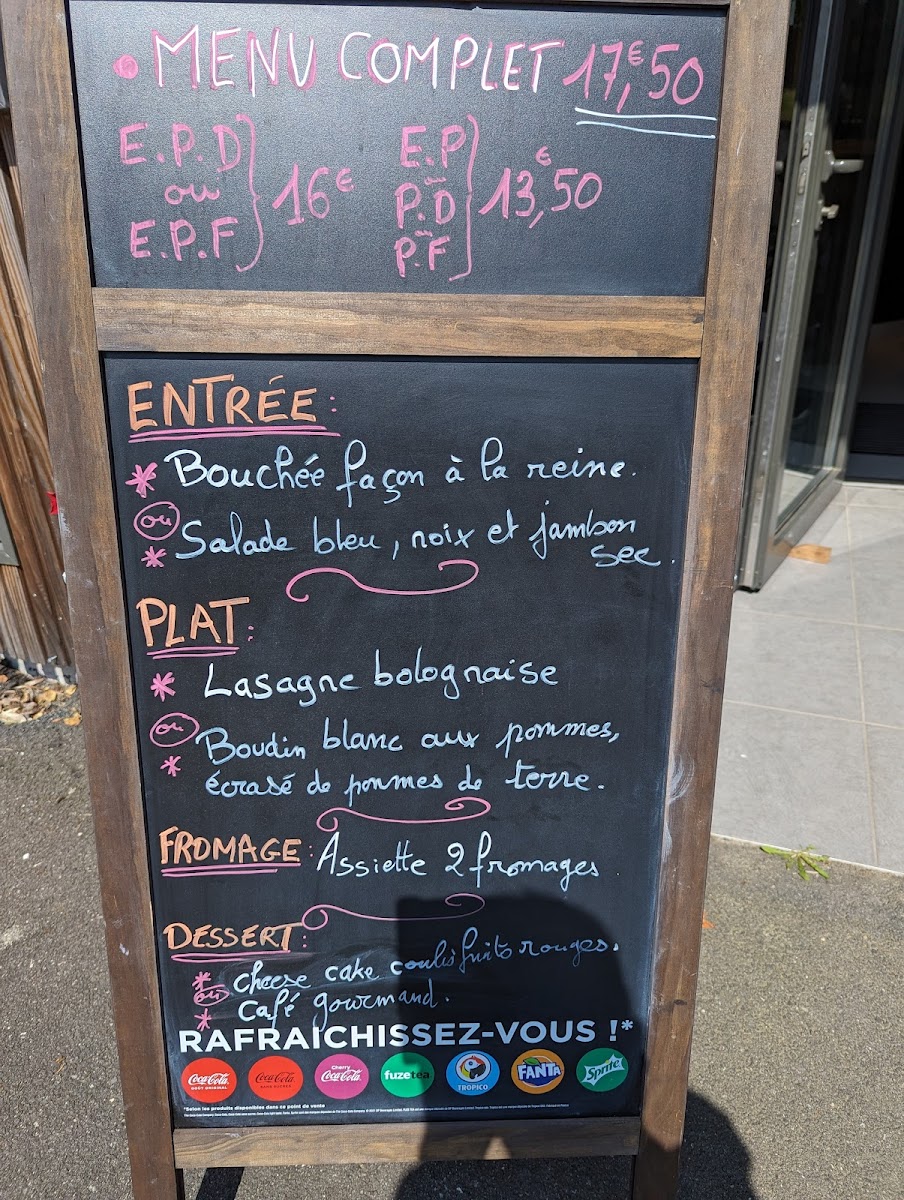 • MENU COMPLET 17,€50
E.P.D
ou
E.P.F
16€
E.P
ou
P.D
ou
P.F
13,€50
ENTRÉE :
* Bouchée façon à la reine.
ou
* Salade bleu, noix et jambon
sec.
PLAT :
* Lasagne bolognaise
ou
* Boudin blanc aux pommes,
écrasé de pommes de terre.
FROMAGE : Assiette 2 fromages
DESSERT :
* cheese cake coulis fruits rouges.
ou
* Café gourmand.
RAFRAICHISSEZ-VOUS !*
Coca-Cola GOÛT ORIGINAL
Coca-Cola SANS SUCRES
Cherry Coca-Cola
fuzetea
TROPICO
FANTA
Sprite
*Selon les produits disponibles dans ce point de vente